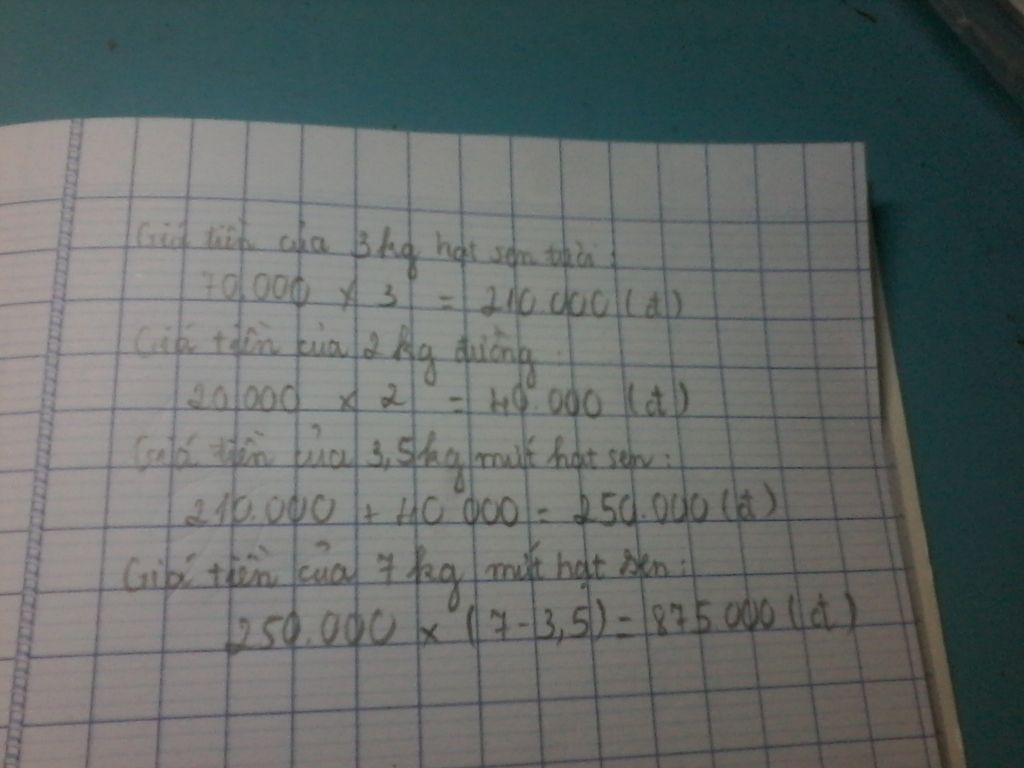 Giá tiền của 3 kg hạt sen tươi:
70.000 x 3 = 210.000 (đ)
Giá tiền của 2 kg đường:
20.000 x 2 = 40.000 (đ)
Giá tiền của 3,5kg mứt hạt sen:
210.000 + 40.000 = 250.000 (đ)
Giá tiền của 7 kg mứt hạt sen:
250.000 x (7 - 3,5) = 875.000 (đ)